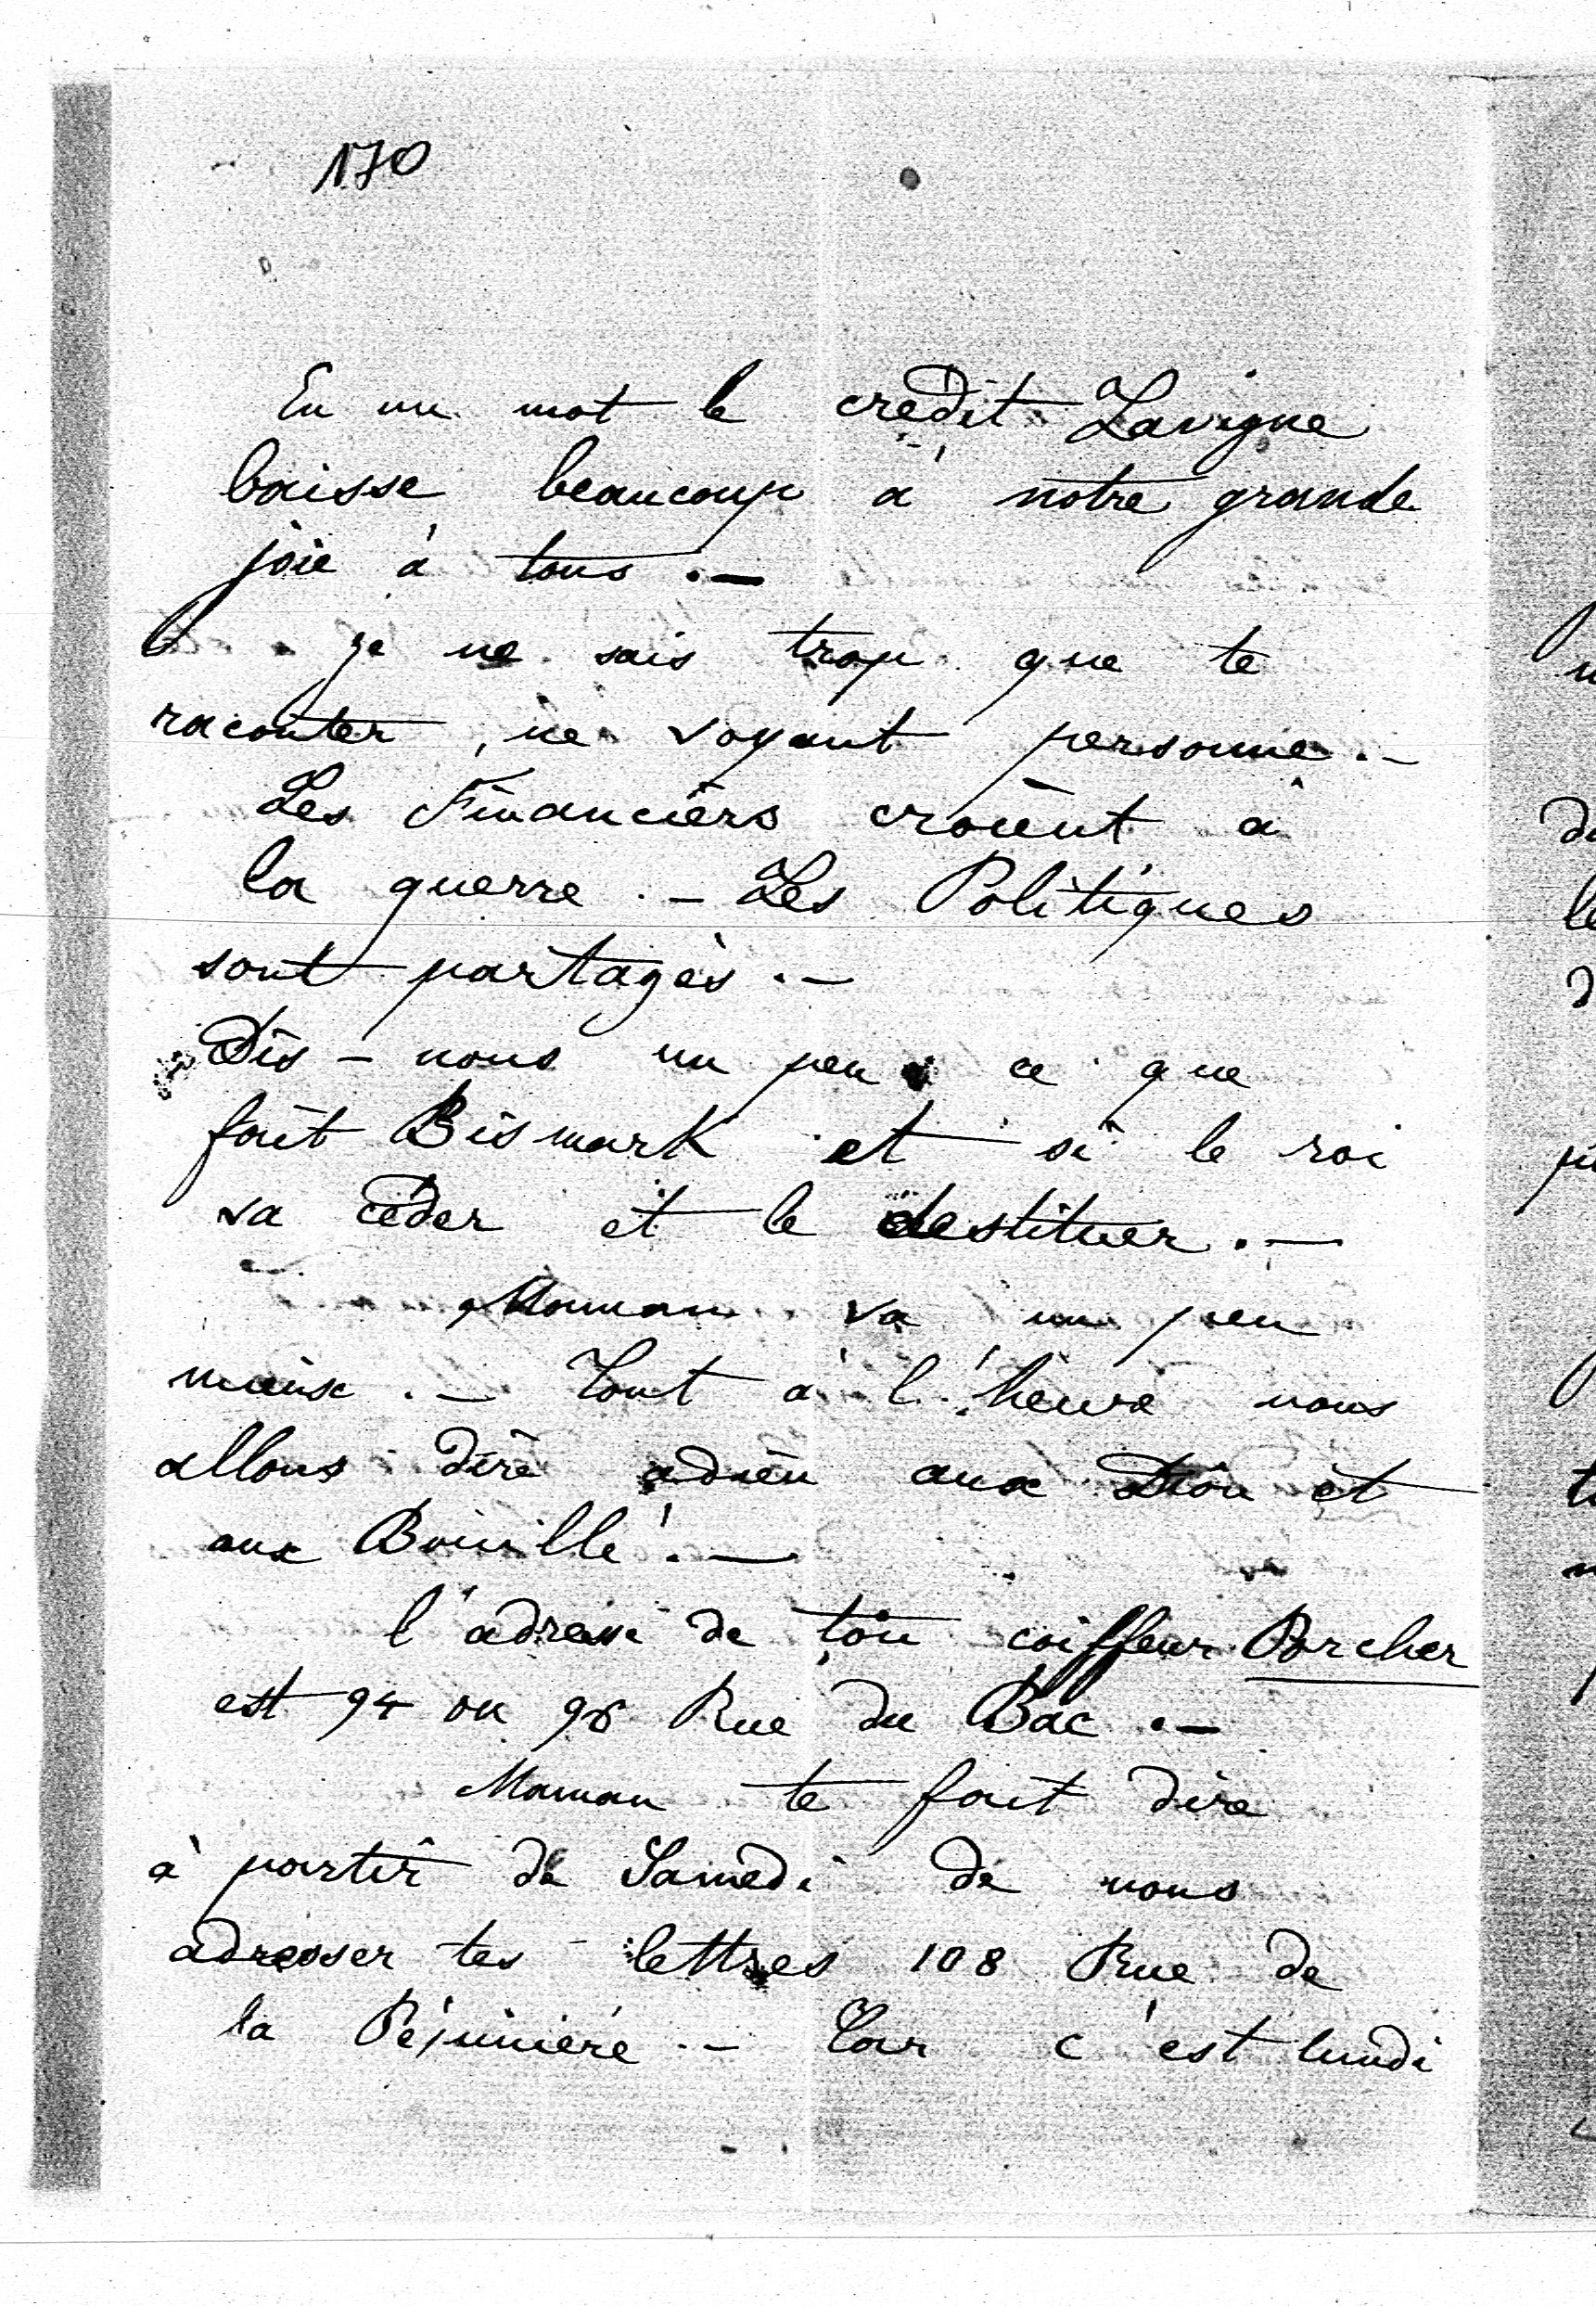 170
En un mot le crédit Lavigne
baisse beaucoup à notre grande
joie à tous. —
je ne sais trop que te
raconter, ne voyant personne. —
Les Financiers croient à
la guerre. — Les Politiques
sont partagés. —
Dis - nous un peu ce que
fait Bismark et si le roi
va céder et le destituer. —
Maman va un peu
mieux. — Tout à l'heure nous
allons dire adieu aux Dion et
aux Boinville. —
l'adresse de ton coiffeur Porcher
est 94 ou 98 Rue du Bac. —
Maman te fait dire
à partir de Samedi de nous
adresser tes lettres 108 Rue de
la Pépinière. — Car c'est lundi